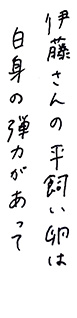 伊藤さんの平飼い卵は
白身の弾力があって